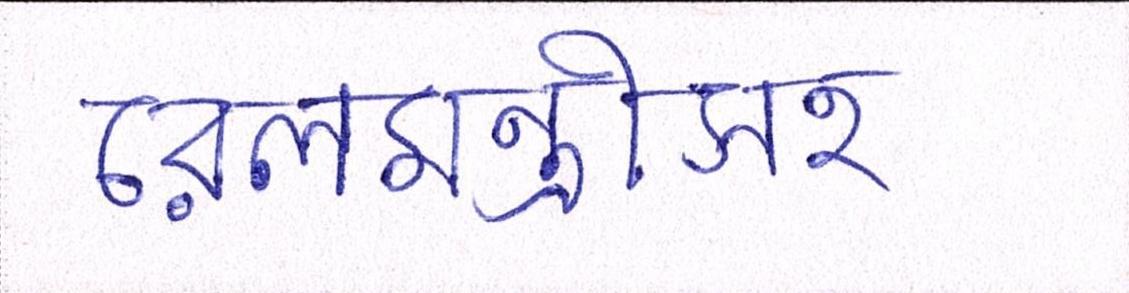 রেলমন্ত্রীসহ